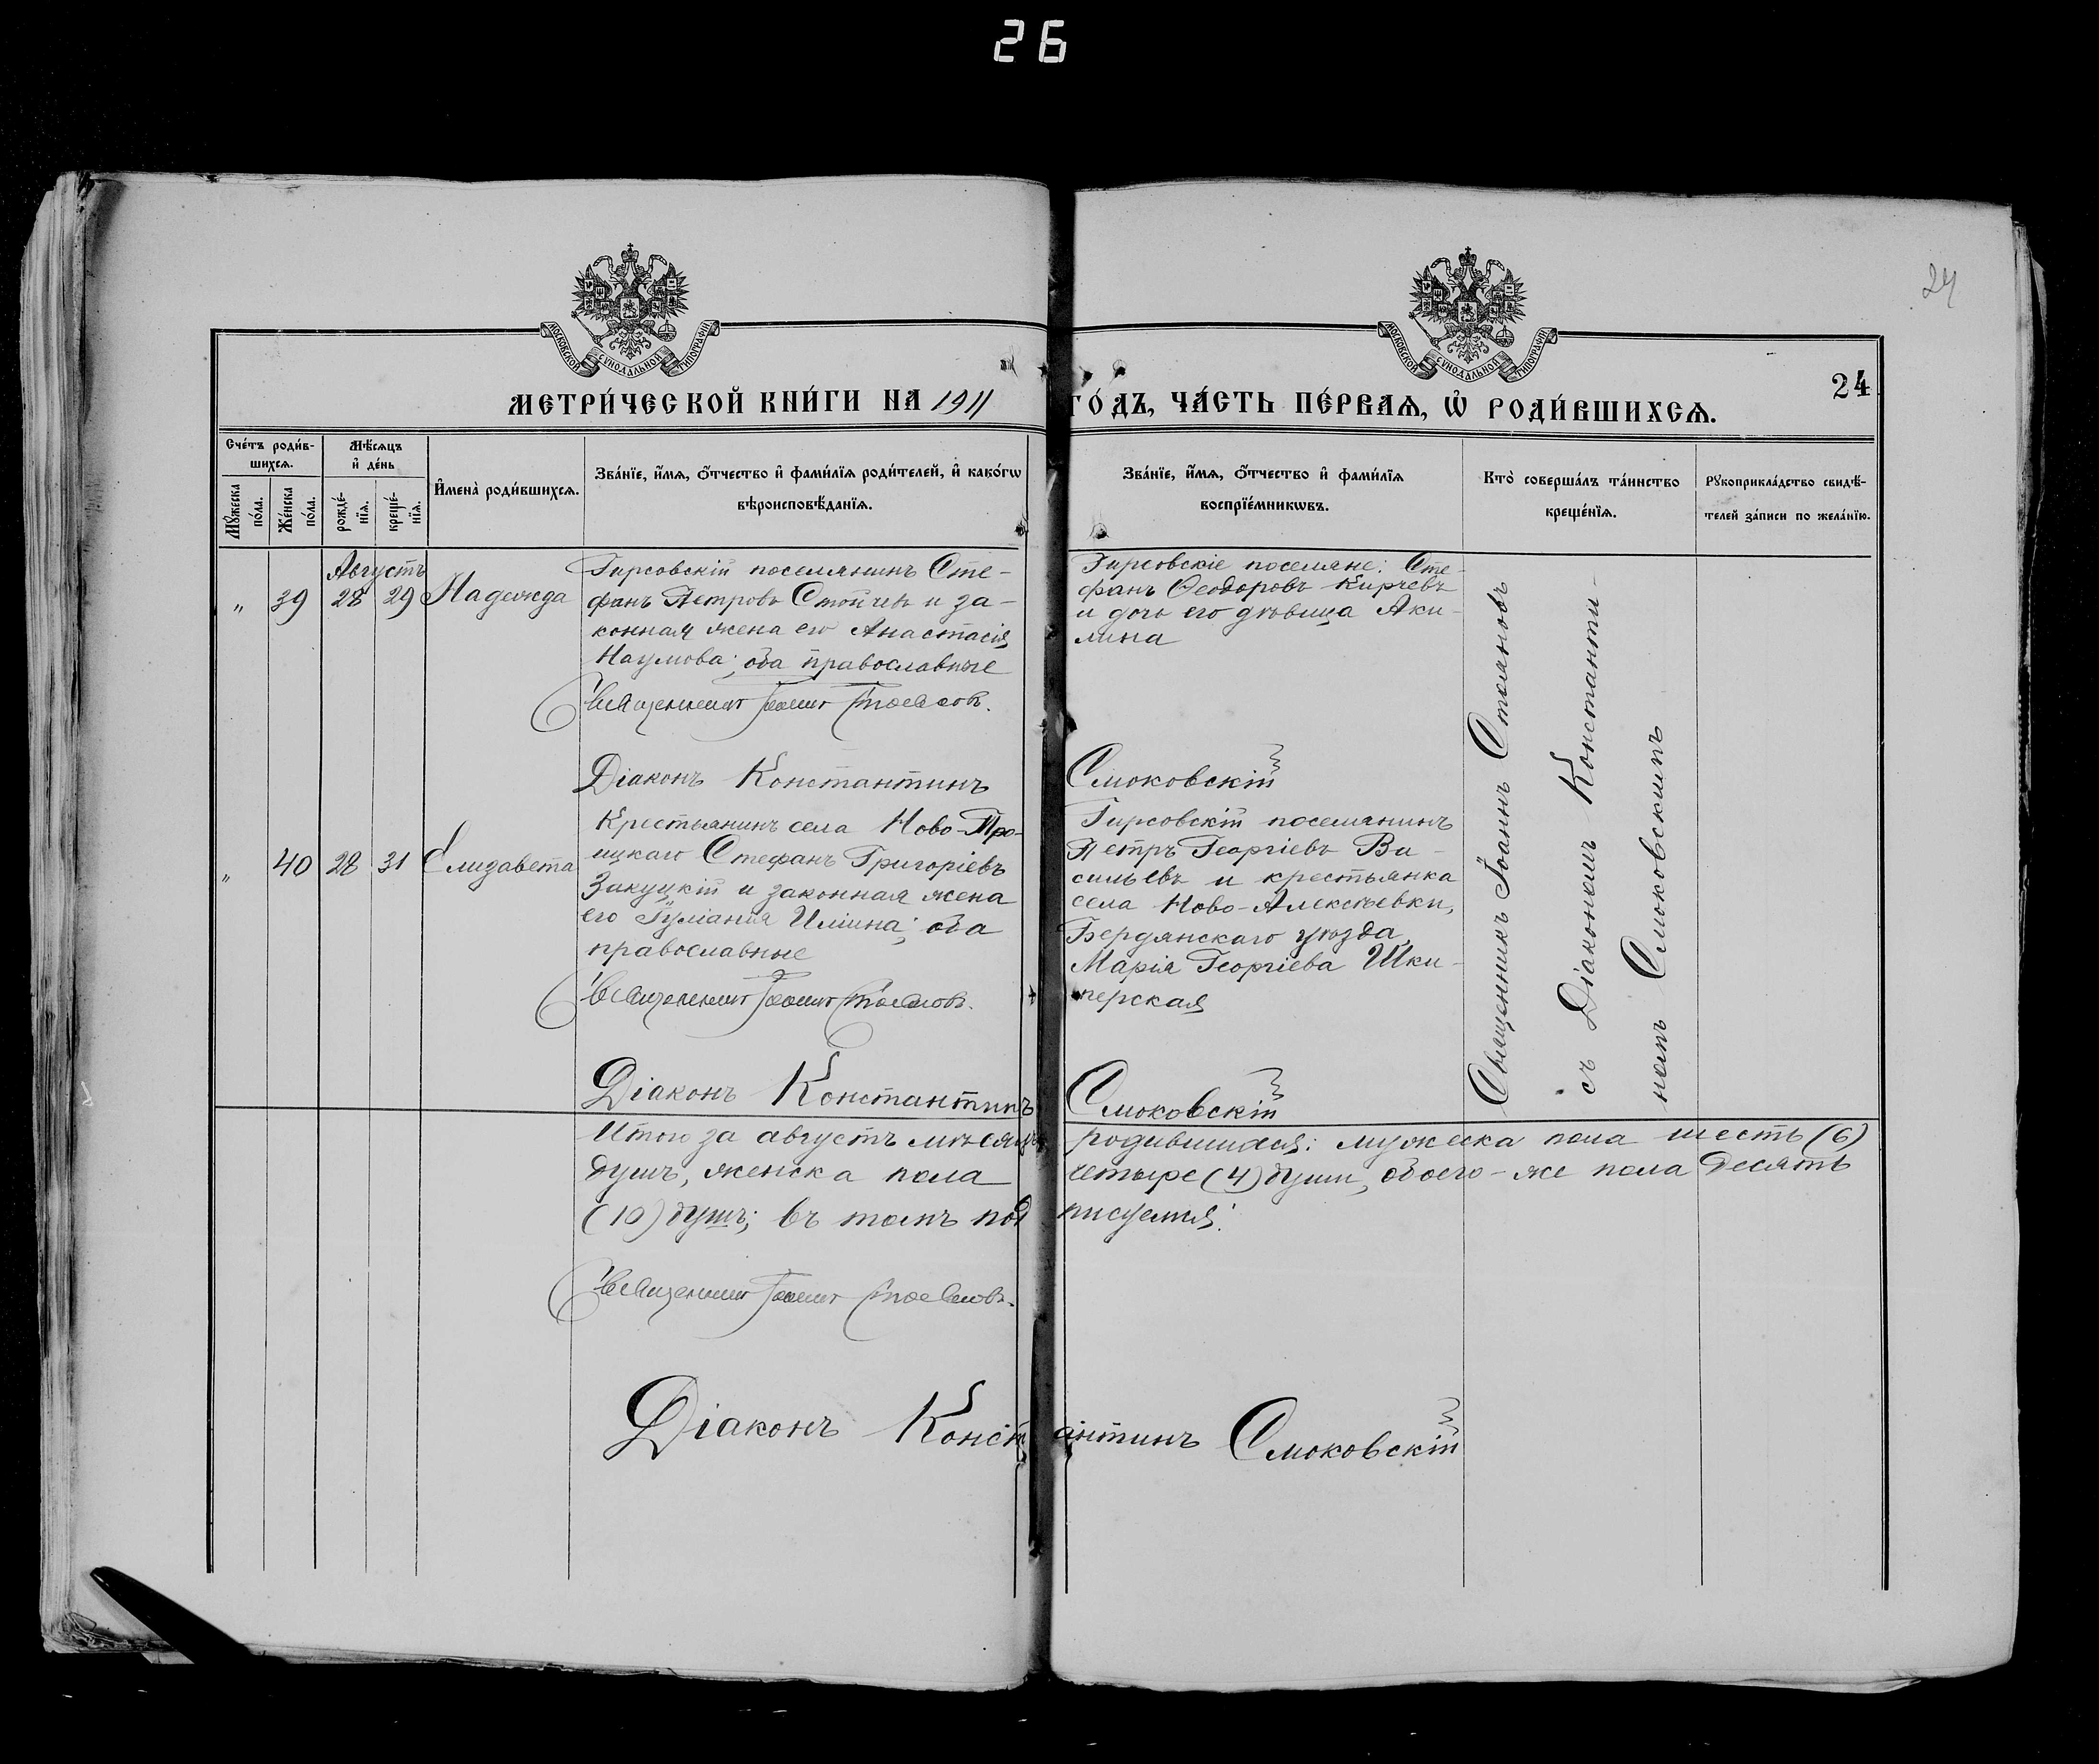 26
МОСКОВСКОЙ СѴНОДАЛЬНОЙ ТИПОГРАФІИ
МОСКОВСКОЙ СѴНОДАЛЬНОЙ ТИПОГРАФІИ
24
24
МЕТРИ́ЧЕСКОЙ КНИ́ГИ НА 1911 ГО́ДЪ, ЧА́СТЬ ПЕ́РВАѦ, Ѡ҆ РОДИ́ВШИХСѦ.
Сче́тъ роди́в-
шихсѧ.
Мꙋ́жеска по́ла.
Же́нска по́ла.
Мѣ́сѧцъ
и҆ де́нь
рожде́-
нїѧ.
креще́-
нїѧ.
И҆мена̀ роди́вшихсѧ.
Зва́нїе, и҆́мѧ, ѻ҆́тчество и҆ фами́лїѧ роди́телей, и҆ како́гѡ
вѣроисповѣ́данїѧ.
Зва́нїе, и҆́мѧ, ѻ҆́тчество и҆ фами́лїѧ
воспрїе́мникѡвъ.
Кто̀ соверша́лъ та́инство
креще́нїѧ.
Рꙋкоприкла́дство свидѣ́-
телей за́писи по жела́нїю.
Августъ
„ 39 28 29 Надежда
Гирсовскій поселянинъ Сте-
фанъ Петровъ Стойчевъ и за-
конная жена его Анастасія
Наумова; оба православные
Священникъ Іоаннъ Стояновъ.
Діаконъ Константинъ Смоковскій
Гирсовскіе поселяне: Сте-
фанъ Ѳеодоровъ Кирчевъ
и дочь его дѣвица Аки-
лина
„ 40 28 31 Елизавета
Крестьянинъ села Ново-Тро-
ицкаго Стефанъ Григоріевъ
Закуцкій и законная жена
его Іуліанія Иліина; оба
православные
Священникъ Іоаннъ Стояновъ.
Діаконъ Константинъ Смоковскій
Гирсовскій поселянинъ
Петръ Георгіевъ Ва-
сильевъ и крестьянка
села Ново-Алексѣевки,
Бердянскаго уѣзда,
Марія Георгіева Шки-
перская
Священникъ Іоаннъ Стояновъ
съ Діакономъ Константи-
номъ Смоковскимъ
Итого за августъ мѣсяцъ родившихся: мужеска пола шесть (6)
душъ, женска пола четыре (4) души, обоего-же пола десять
(10) душъ; въ томъ подписуемся:
Священникъ Іоаннъ Стояновъ.
Діаконъ Константинъ Смоковскій